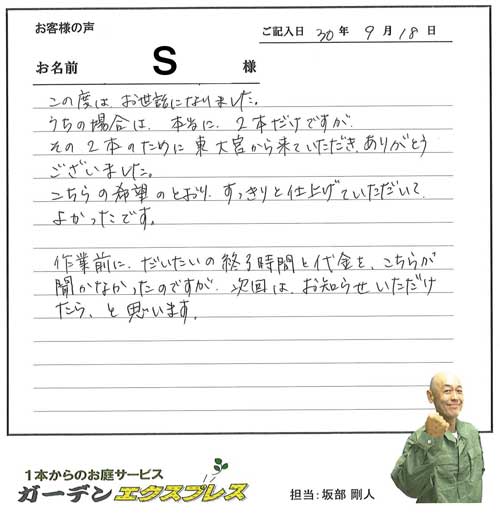 お客様の声
ご記入日 30年 9月 18日
お名前 S 様
この度は、お世話になりました。
うちの場合は、本当に、2本だけですが、
その2本のために東大宮から来ていただき、ありがとう
ございました。
こちらの希望のとおり、すっきりと仕上げていただいて、
よかったです。
作業前に、だいたいの終了時間と代金を、こちらが
聞かなかったのですが、次回は、お知らせいただけ
たら、と思います。
1本からのお庭サービス
ガーデンエクスプレス
担当:坂部 剛人